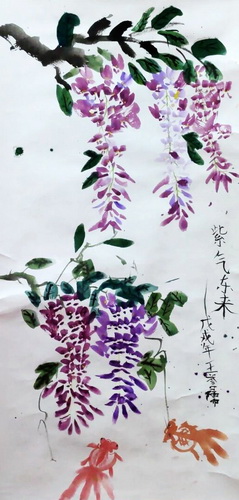 紫气东来
戊戌年